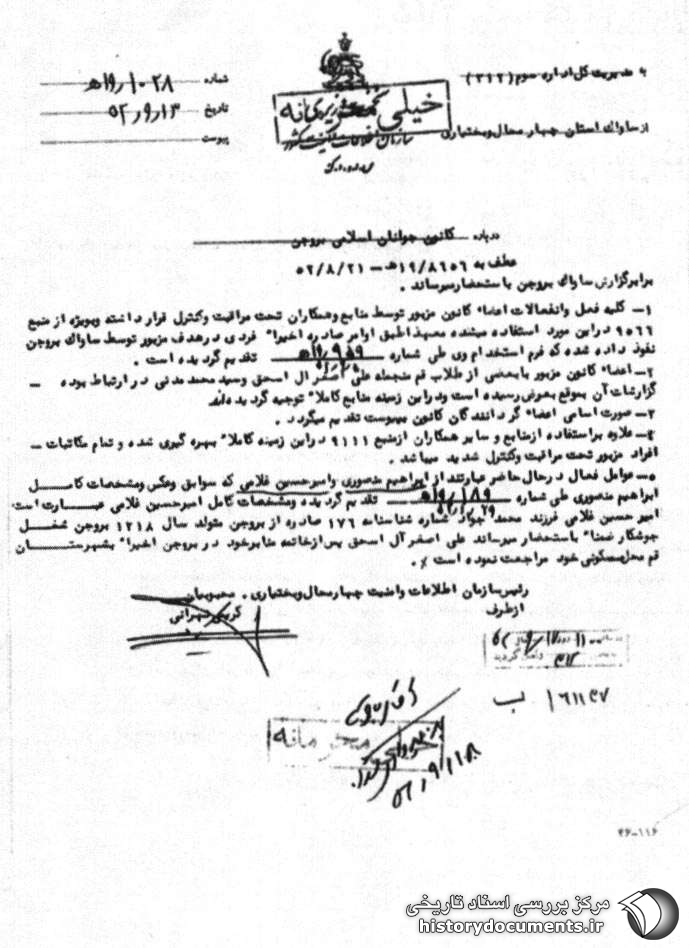 به مدیریت کل اداره سوم (۳۱۲)
از ساواک استان چهار محال و بختیاری
خیلی محرمانه
سازمان اطلاعات و امنیت کشور
س.ا.و.ا.ک
شماره ۱۰۲۸/۱۹ه
تاریخ ۵۲/۹/۱۳
پیوست
درباره کانون جوانان اسلامی بروجن
عطف به ۱۹/۸۶۵۶ه – ۵۲/۸/۲۱
برابر گزارش ساواک بروجن با ستحضار میرساند .
۱– کلیه فعل وانفعالات اعضاء کانون مزبور توسط منابع وهمکاران تحت مراقبت وکنترل قرار داشته وبویژه از منبع
۹۰۶۶ دراین مورد استفاده میشده معهذا طبق اوامر صادره اخیرا" فردی در هدف مزبور توسط ساواک بروجن
نفوذ داده شده که فرم استخدام وی طی شماره تقدیم گردیده است .
۲– اعضاء کانون مزبور با بعضی از طلاب قم منجمله علی اصغر ال اسحق وسید محمد مدنی در ارتباط بوده –
گزارشات آن بموقع بعرض رسیده است ودراین زمینه منابع کاملا" توجیه گردیده اند
۳– صورت اسامی اعضاء گردانندگان کانون بپیوست تقدیم میگردد .
۴– علاوه براستفاده ازمنابع و سایر همکاران ازمنبع ۹۱۱۱ دراین زمینه کاملا" بهره گیری شده و تمام مکاتبات –
افراد مزبور تحت مراقبت وکنترل شدید میباشد .
۵– عوامل فعال درحال حاضر عبارتند از ابراهیم منصوری وامیرحسین غلامی که سوابق وعکس ومشخصات کامل
ابراهیم منصوری طی شماره تقدیم گردیده ومشخصات کامل امیرحسین غلامی عبارت است
امیر حسین غلامی فرزند محمد جواد شماره شناسنامه ۱۷۶ صادره از بروجن متولد سال ۱۳۱۸ بروجن شغل
جوشکار ضمنا" با ستحضار میرساند علی اصغر آل اسحق پس ازخاتمه منابر خود در بروجن اخیرا" بشهرستان
قم محل مسکونی خود مراجعت نموده است ٪ .
رئیس سازمان اطلاعات وامنیت چهارمحال وبختیاری . محبوبیان
ازطرف
کریمی تهرانی
۱۶۱۱۴۷ ب
۵۲/۹/۱۸
۴۶-۱۱۶
مرکز بررسی اسناد تاریخی
historydocuments.ir